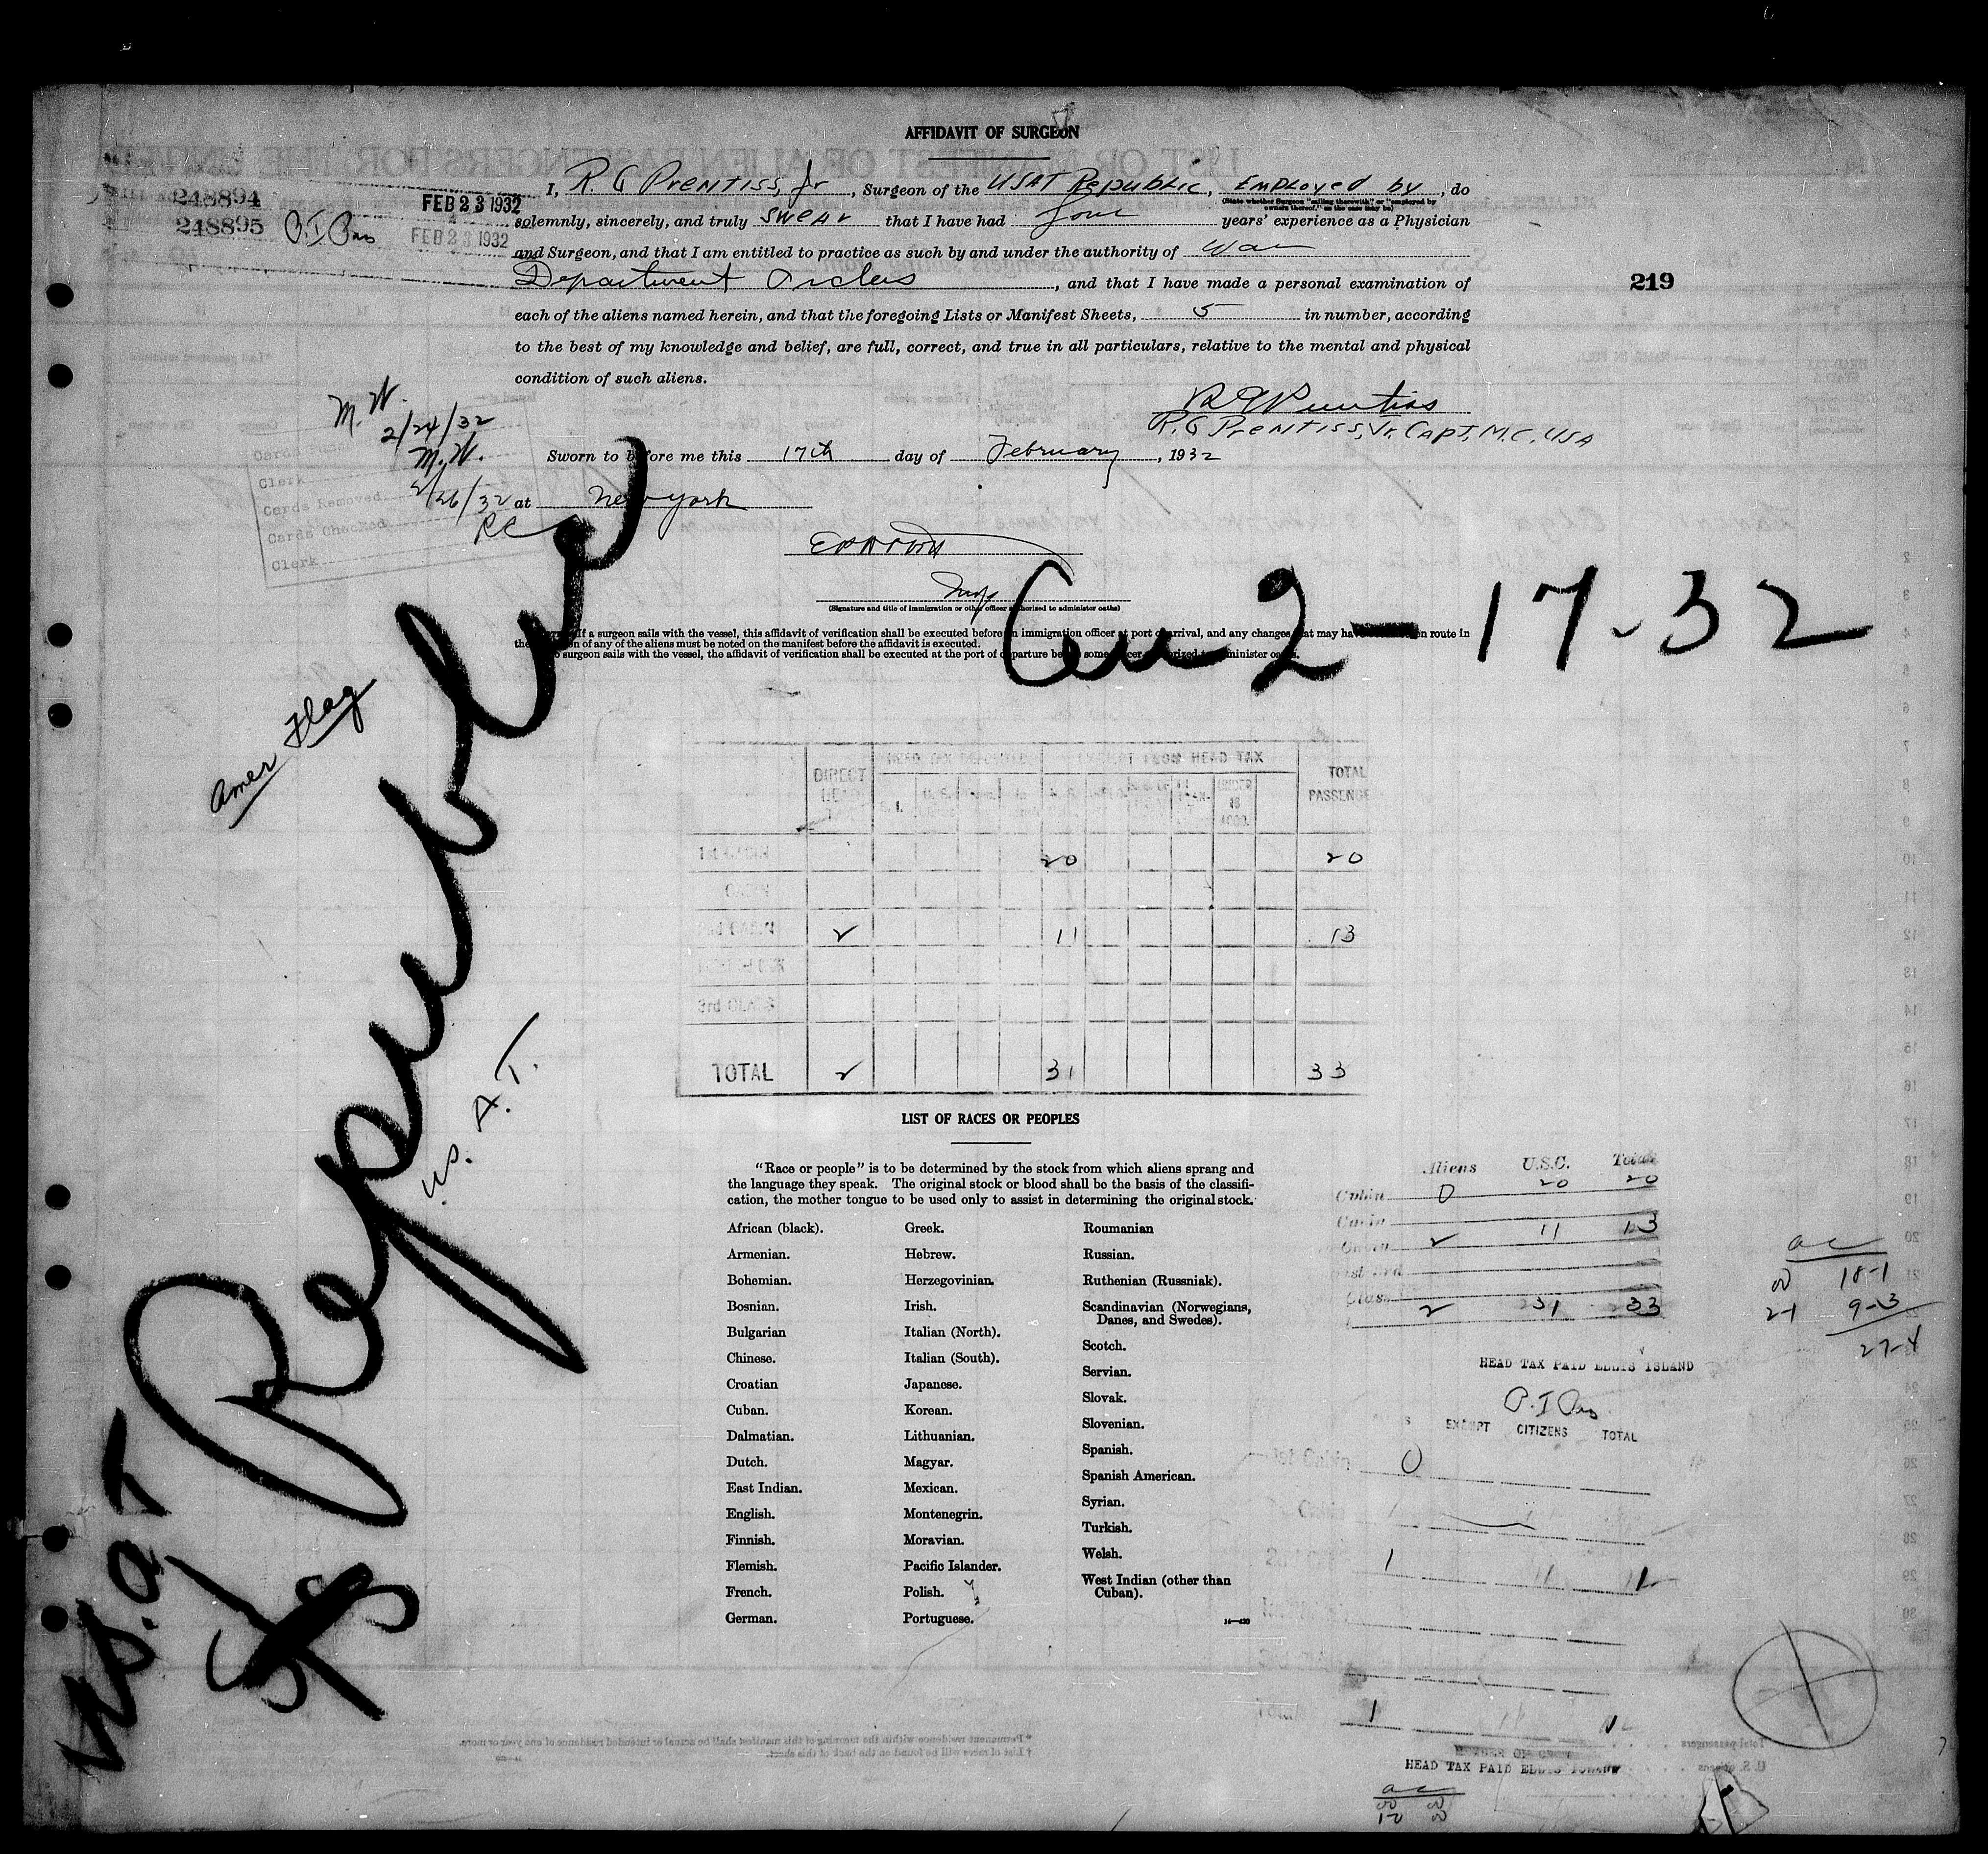 AFFIDAVIT OF SURGEON
248894
248895
P. I. Pas
FEB 23 1932
FEB 23 1932
I, R. G Prentiss, Jr, Surgeon of the USAT Republic, Employed by, do
(State whether Surgeon "sailing therewith" or "employed by
owners thereof," as the case may be)
solemnly, sincerely, and truly swear that I have had four years' experience as a Physician
and Surgeon, and that I am entitled to practice as such by and under the authority of War
Department Orders, and that I have made a personal examination of
219
each of the aliens named herein, and that the foregoing Lists or Manifest Sheets, 5 in number, according
to the best of my knowledge and belief, are full, correct, and true in all particulars, relative to the mental and physical
condition of such aliens.
R G Prentiss
R. G Prentiss, Jr. Capt, M.C, USA
M. W.
2/24/32
M. W.
2/26/32
RC
Cards Punc
Clerk
Cards Removed
Cards Checked
Clerk
Sworn to before me this 17th day of February, 1932
at New York
Insp
(Signature and title of immigration or other officer authorized to administer oaths)
If a surgeon sails with the vessel, this affidavit of verification shall be executed before an immigration officer at port of arrival, and any changes that may have en route in
the en of any of the aliens must be noted on the manifest before the affidavit is executed.
surgeon sails with the vessel, the affidavit of verification shall be executed at the port of departure before some officer authorized to administer oaths.
Arr 2-17-32
Amer Flag
U.S.A.T
SS Republic
U.S. A. T.
DIRECT HEAD TAX
EXEMPT FROM HEAD TAX
TOTAL PASSENGE
UNDER 16 ACCO.
1st CABIN 20 20
CABIN
2nd CABIN 2 11 13
3rd CLASS
TOTAL 2 31 33
LIST OF RACES OR PEOPLES
"Race or people" is to be determined by the stock from which aliens sprang and
the language they speak. The original stock or blood shall be the basis of the classifi-
cation, the mother tongue to be used only to assist in determining the original stock.
African (black).
Armenian.
Bohemian.
Bosnian.
Bulgarian
Chinese.
Croatian
Cuban.
Dalmatian.
Dutch.
East Indian.
English.
Finnish.
Flemish.
French.
German.
Greek.
Hebrew.
Herzegovinian.
Irish.
Italian (North).
Italian (South).
Japanese.
Korean.
Lithuanian.
Magyar.
Mexican.
Montenegrin.
Moravian.
Pacific Islander.
Polish.
Portuguese.
Roumanian
Russian.
Ruthenian (Russniak).
Scandinavian (Norwegians,
Danes, and Swedes).
Scotch.
Servian.
Slovak.
Slovenian.
Spanish.
Spanish American.
Syrian.
Turkish.
Welsh.
West Indian (other than
Cuban).
14—420
Aliens U.S.C. Total
Cabin 0 20 20
Cabin
Cabin 2 11 13
Class
2 31 33
ac
00 18-1
2-1 9-3
27-4
HEAD TAX PAID ELLIS ISLAND
P. I Pas
EXEMPT CITIZENS TOTAL
1st Cabin 0
Cabin
1 11 12
Total 1 11 12
HEAD TAX PAID ELLIS ISLAND
ac
00 00
1-0 00